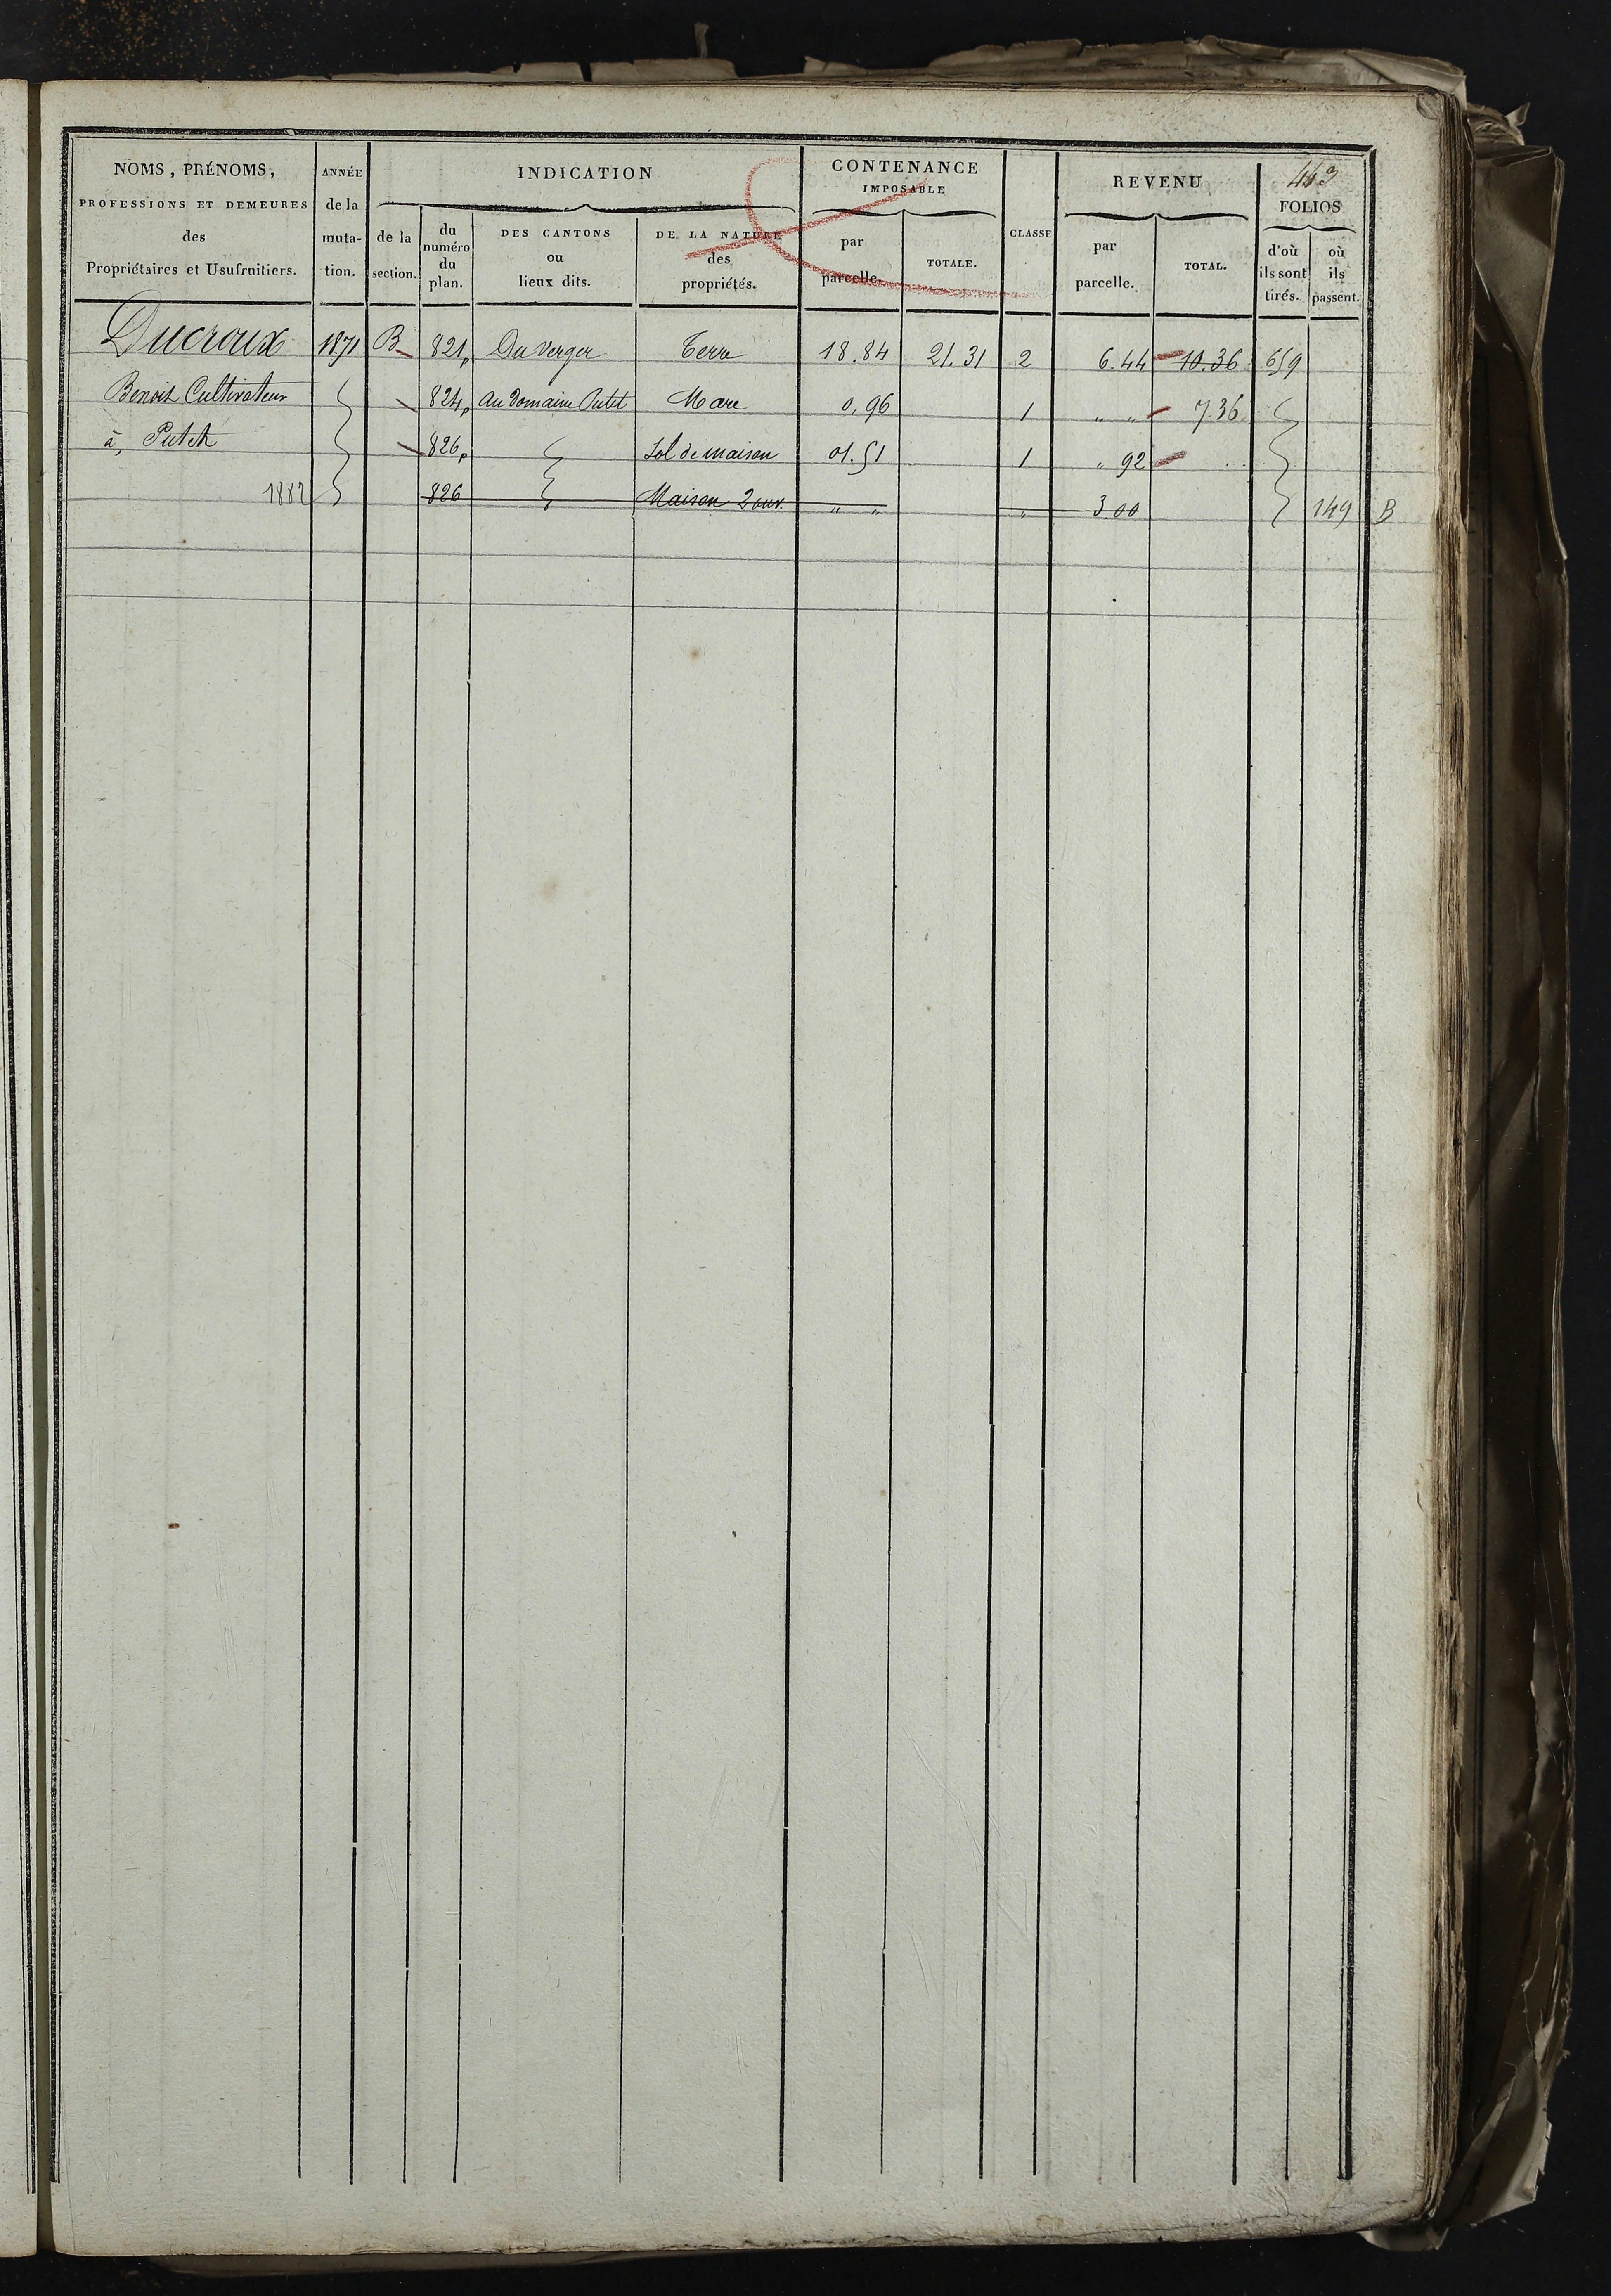 443
NOMS, PRÉNOMS,
PROFESSIONS ET DEMEURES
des
Propriétaires et Usufruitiers.
ANNÉE
de la
muta-
tion.
INDICATION
de la
section.
du
numéro
du
plan.
DES CANTONS
ou
lieux dits.
DE LA NATURE
des
propriétés.
CONTENANCE
IMPOSABLE
par
parcelle.
TOTALE.
CLASSE
REVENU
par
parcelle.
TOTAL.
FOLIOS
d'où
ils sont
tirés.
où
ils
passent.
Ducroux 1871 B 821p Du Verger Terre 18.84 21.31 2 6.44 10.36 659
Benoit Cultivateur 824p Au Domaine Putet Mare 0,96 1 " " 7.36
à Putet 826p Sol de maison 01.51 1 " 92
1882 826 Maison 2 ouv. " " " 3 00 149 B